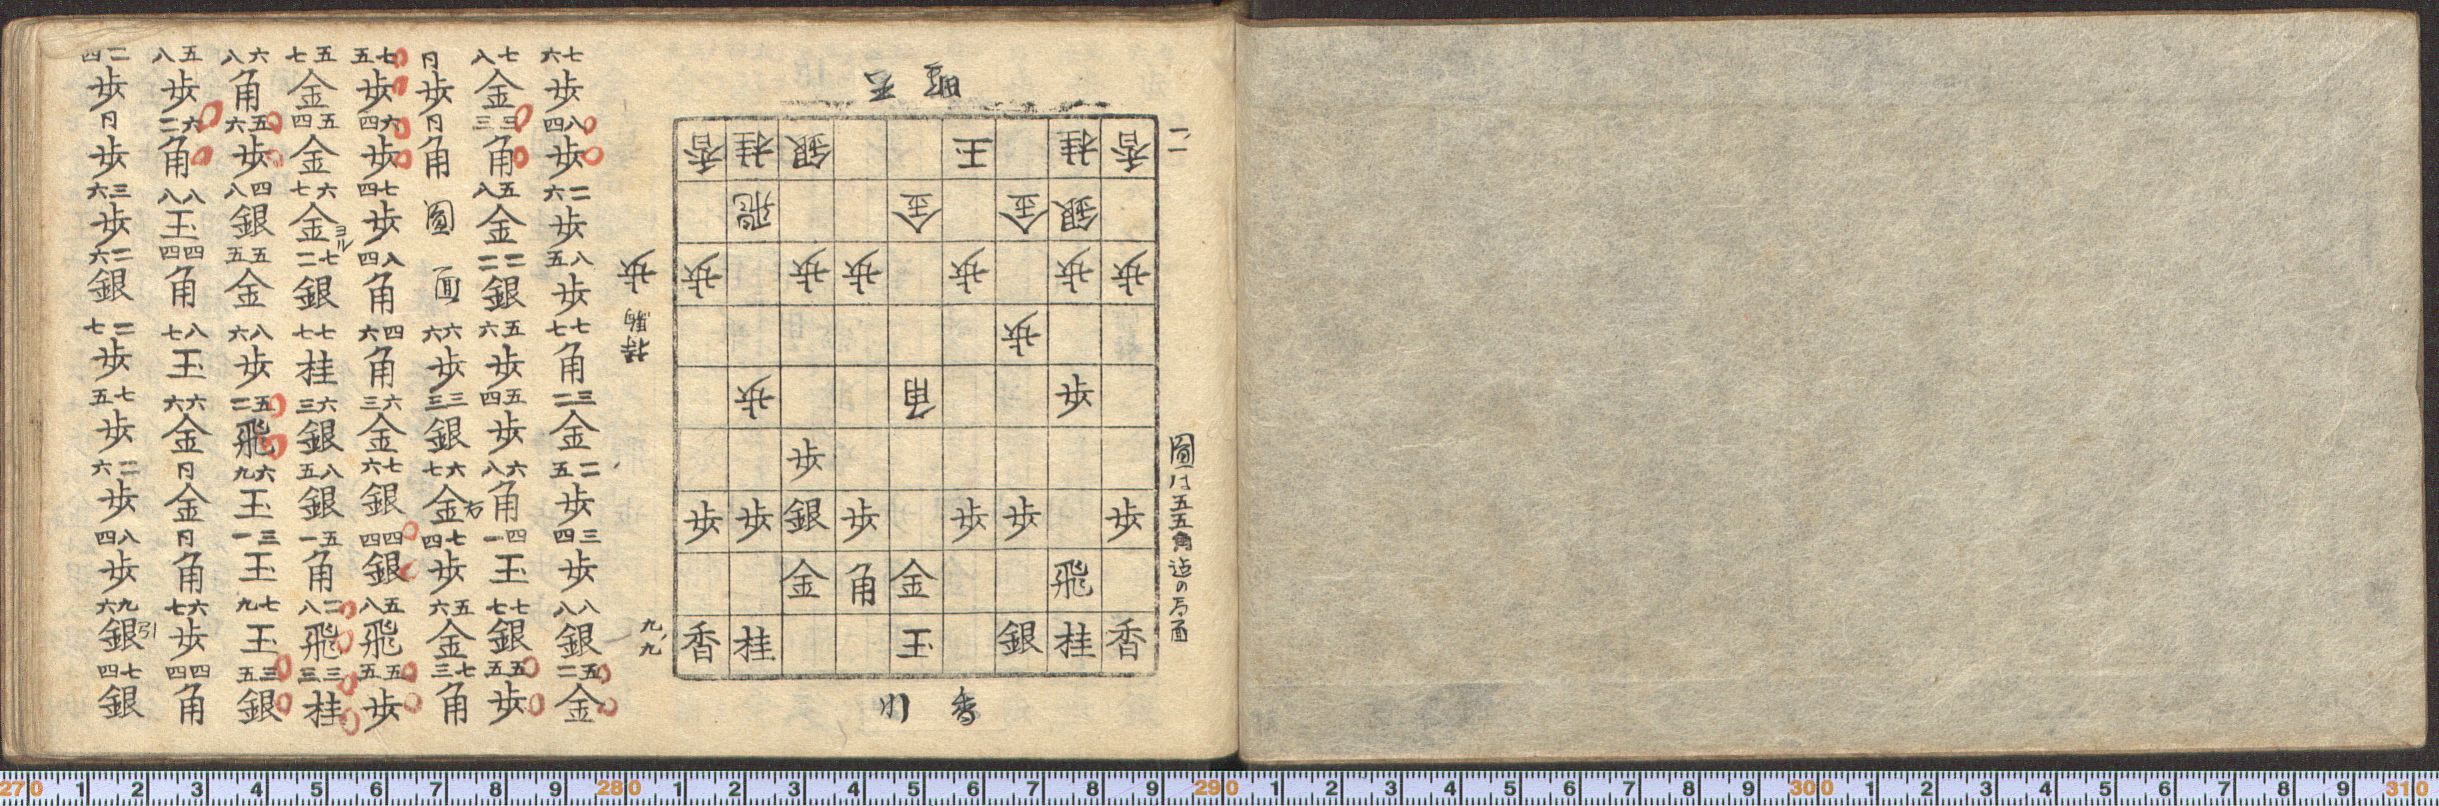 一一
圖は五五角迄の局面
香桂銀玉桂香
飛金金銀
歩歩歩歩歩歩
歩
歩角歩
歩
歩歩銀歩歩歩歩
金角金飛
香桂玉銀桂香
香川
持駒 歩
九、九
七六歩 八四歩 二六歩 八五歩 七七角 三二金 二五歩 三四歩 八八銀 五二金
七八金 三三角 五八金 二二銀 五六歩 五四歩 六八角 四一玉 七七銀 五五歩
同歩 同角 圖面 六六歩 三三銀 六七金右 七四歩 五六金 七三角
七五歩 六四歩 七四歩 八四角 四六角 六三金 七六銀 四四銀 五八飛 五五歩
五七金 五四金 六七金ヨル 七二銀 七七桂 六三銀 八五銀 五一角 二八飛 三三桂
六八角 五六歩 四八銀 五五金 八六歩 五二飛 六九玉 三一玉 七九玉 三五銀
五八歩 六二角 八八玉 四四角 八七玉 六六金 同金 同角 六七歩 四四角
二四歩 同歩 三六歩 二六銀 二七歩 七五歩 二六歩 八四歩 九六銀引 七四銀
270 1 2 3 4 5 6 7 8 9 280 1 2 3 4 5 6 7 8 9 290 1 2 3 4 5 6 7 8 9 300 1 2 3 4 5 6 7 8 9 310